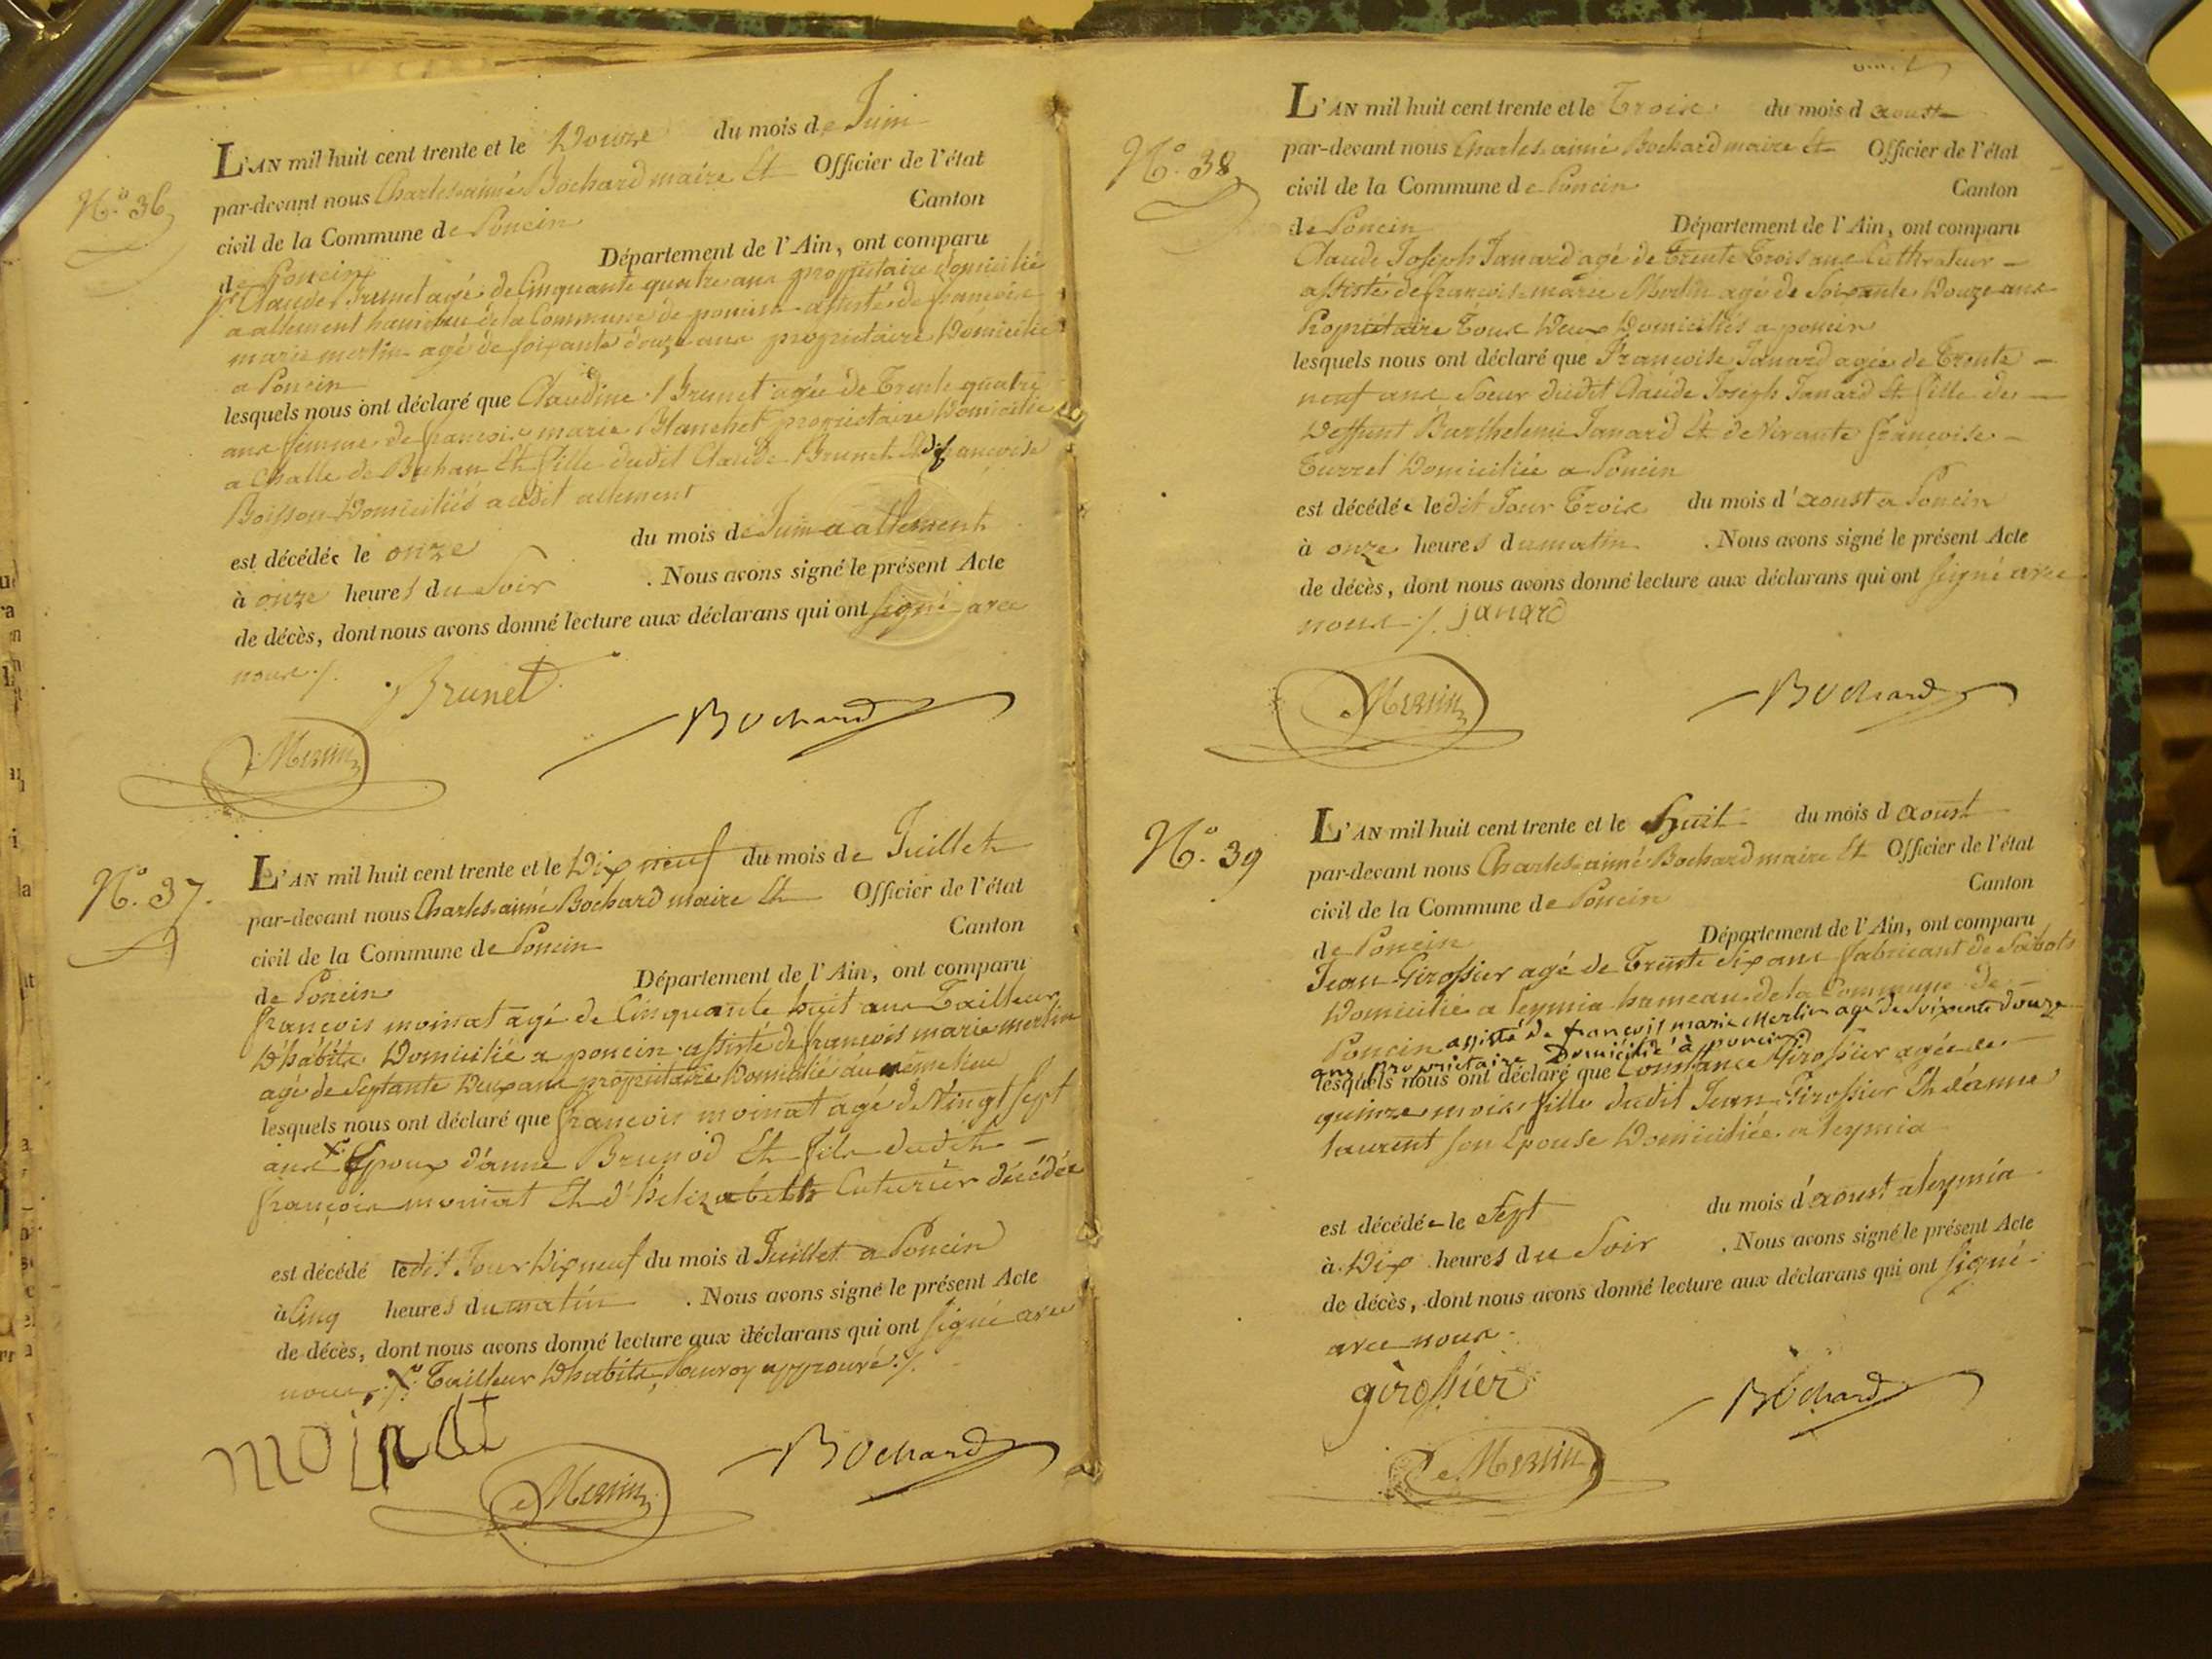 N.o 36
L'AN mil huit cent trente et le Douze du mois de Juin
par-devant nous Charles aimé Bochard maire Et Officier de l'état
civil de la Commune de Poncin Canton
de Poncin Département de l'Ain, ont comparu
Claude Brunet agé de Cinquante quatre ans propriétaire domicilié
a allement hameau de la Commune de poncin assisté de francois
marie merlin agé de soixante douze ans propriétaire Domicilié
a Poncin
lesquels nous ont déclaré que Claudine Brunet agée de Trente quatre
ans femme de francois marie Blanchet propriétaire Domicilié
a Challe de Bohan Et fille dudit Claude Brunet Et de francoise
Boisson Domiciliés audit allement
est décédée le onze du mois de Juin a allement
à onze heures du Soir . Nous avons signé le présent Acte
de décès, dont nous avons donné lecture aux déclarans qui ont signé avec
nous ./.
Brunet
Bochard
Merlin
N.o 37.
L'AN mil huit cent trente et le Dix neuf du mois de Juillet
par-devant nous Charles aimé Bochard maire Et Officier de l'état
civil de la Commune de Poncin Canton
de Poncin Département de l'Ain, ont comparu
francois moinat agé de Cinquante huit ans Tailleur
D'habits Domicilié a poncin assisté de francois marie merlin
agé de Septante Deux ans propriétaire Domicilié au même lieu
lesquels nous ont déclaré que francois moinat agé de Vingt sept
ans X Epoux d'anne Brunod Et fils dudit
francois moinat Et d'helizabeth Cuturier décédée
est décédé ledit Jour Dix neuf du mois d Juillet a Poncin
à Cinq heures du matin . Nous avons signé le présent Acte
de décès, dont nous avons donné lecture aux déclarans qui ont signé avec
nous ./. X Tailleur D'habits, Renvoy approuvé ./.
moinat
Merlin
Bochard
N.o 38
L'AN mil huit cent trente et le Trois du mois d aoust
par-devant nous Charles aimé Bochard maire Et Officier de l'état
civil de la Commune de Poncin Canton
de Poncin Département de l'Ain, ont comparu
Claude Joseph Janard agé de Trente Trois ans Culthivateur
assisté de francois marie Merlin agé de Soixante Douze ans
Propriétaire Tous Deux Domiciliés a poncin
lesquels nous ont déclaré que Francoise Janard agée de Trente
neuf ans Soeur dudit Claude Joseph Janard Et fille de
Deffunt Barthelemi Janard Et de Vivante francoise
Domiciliée a Poncin
est décédée ledit Jour Trois du mois d'aoust a Poncin
à onze heures du matin . Nous avons signé le présent Acte
de décès, dont nous avons donné lecture aux déclarans qui ont signé avec
nous ./. janard
Merlin
Bochard
N.o 39
L'AN mil huit cent trente et le Huit du mois d aoust
par-devant nous Charles aimé Bochard maire Et Officier de l'état
civil de la Commune de Poncin Canton
de Poncin Département de l'Ain, ont comparu
Jean Girossier agé de Trente Six ans fabricant de Sabots
Domicilié a leymia hameau de la Commune de
Poncin assisté de françois marie Merlin agé de soixante douze
ans propriétaire Domicilié à poncin
lesquels nous ont déclaré que Constance Girossier agée de
quinze mois fille dudit Jean Girossier Et d'anne
laurent son Epouse Domiciliée a leymia
est décédée le Sept du mois d'aoust a leymia
à Dix heures du Soir . Nous avons signé le présent Acte
de décès, dont nous avons donné lecture aux déclarans qui ont signé
avec nous.
girossier
Bochard
Merlin